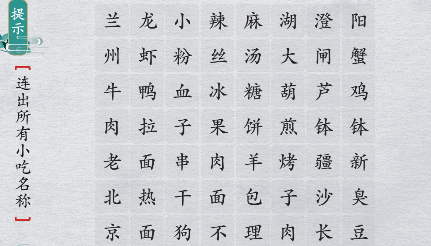 提示
【连出所有小吃名称】
兰龙小辣麻湖澄阳
州虾粉丝汤大闸蟹
牛鸭血冰糖葫芦鸡
肉拉子果饼煎钵钵
老面串肉羊烤疆新
北热干面包子沙臭
京面狗不理肉长豆